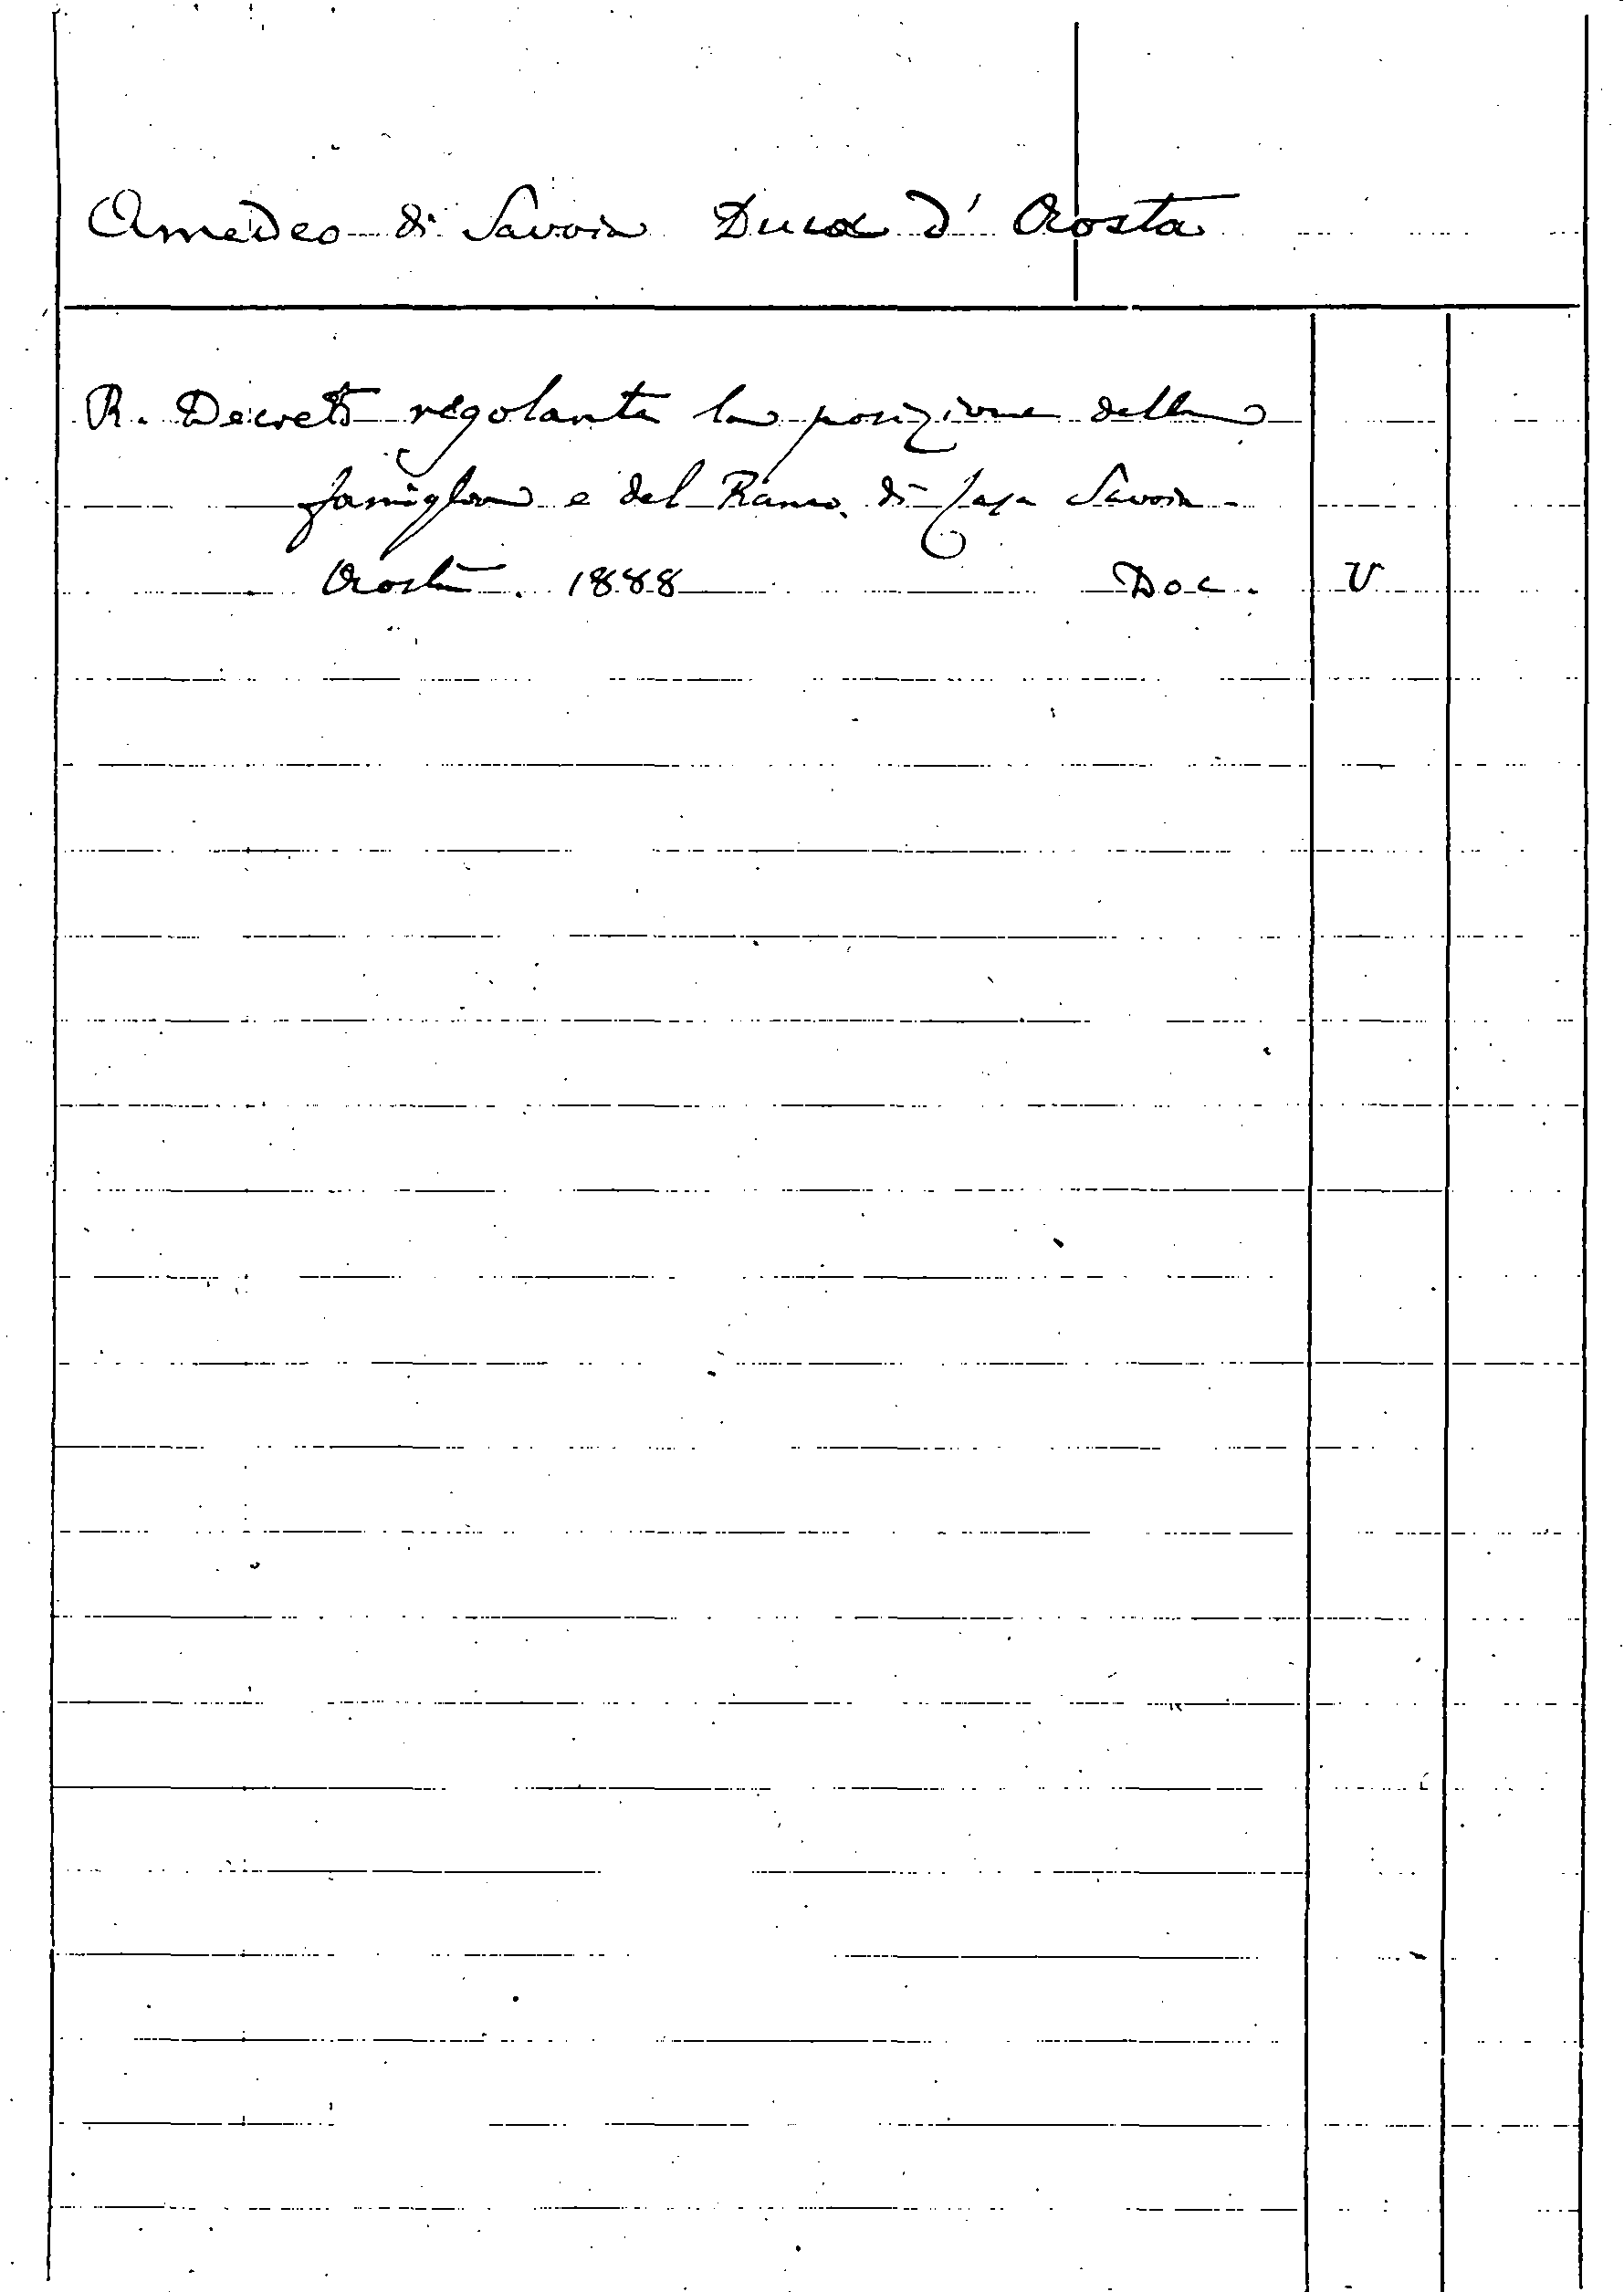 Amedeo di Savoia Duca d' Aosta
R. Decreto regolante la posizione della
famiglia e del Ramo di Casa Savoia -
Aosta. 1888 Doc. V